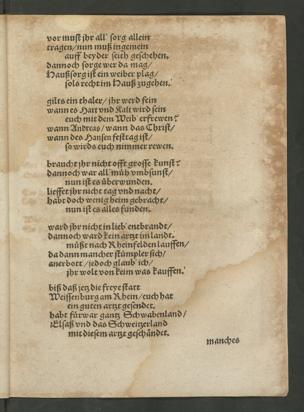 vor must jhr all' sorg allein
tragen/ nun muß ingemein
auff beyder seith geschehen.
dannoch sorge wer da mag/
Haußsorg ist ein weiber plag/
solo recht im Hauß zugehen.
gilts ein thaler/ jhr werd sein
wann es Hart vnd Kalt wird sein
euch mit dem Weib erfrewen?
wann Andreas/ wann das Christ/
wann des Hansen festtag ist/
so wirds euch nimmer rewen.
braucht jhr nicht offt grosse kunst?
dannoch war all' müh vmbsunst/
nun ist es vberwunden.
lieffet jhr nicht tag vnd nacht/
habt doch wenig heim gebracht/
nun ist es alles funden.
ward jhr nicht in lieb' entbrandt/
dannoch ward kein artzt im landt.
müßt nach Rheinfelden lauffen/
da dann mancher stümpler sich/
anerbott/ jedoch glaub' ich/
jhr wolt von kein was kauffen.
biß daß jetz die freye statt
Weissenburg am Rhein/ euch hat
ein guten artzt gesendet.
habt fürwar gantz Schwabenland/
Elsaß vnd das Schweitzerland
mit diesem artzt geschändet.
manches